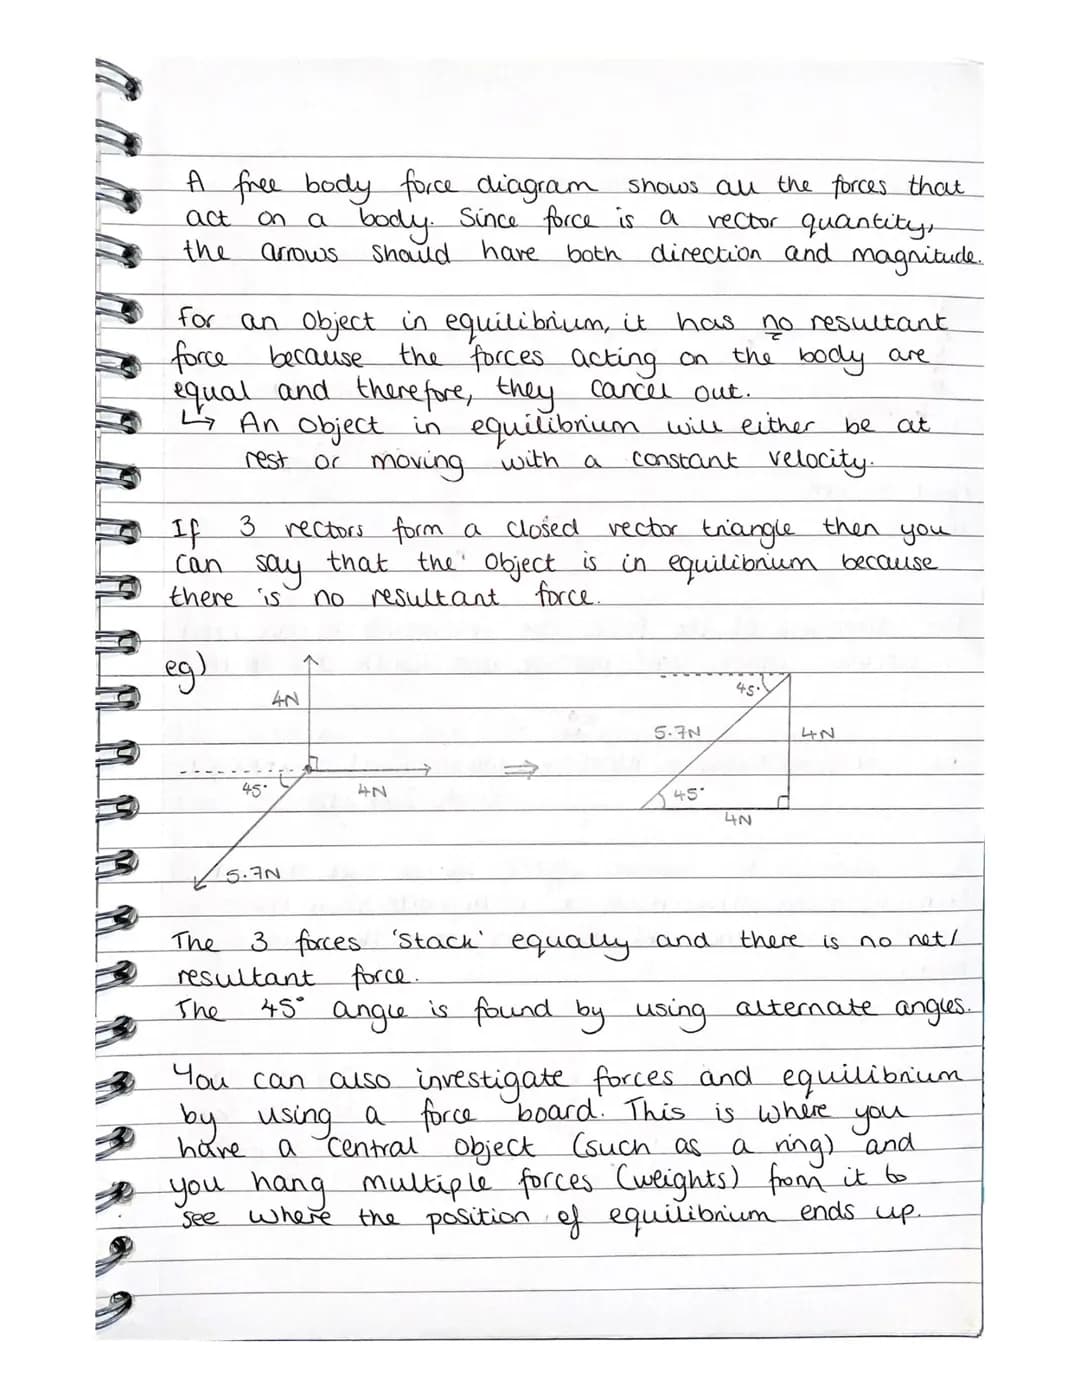 A free body force diagram shows all the forces that
act on a body. Since force is a vector quantity,
the arrows should have both direction and magnitude.
For an object in equilibrium, it has no resultant
force because the forces acting on the body are
equal and therefore, they cancel out.
↳ An object in equilibrium will either be at
rest or moving with a constant velocity.
If 3 vectors form a closed vector triangle then you
can say that the object is in equilibrium because
there is no resultant force.
eg)
4N
45°
4N
5.7N
⇒
45°
5.7N
4N
45°
4N
The 3 forces 'stack' equally and there is no net/
resultant force.
The 45° angle is found by using alternate angles.
You can also investigate forces and equilibrium
by using a force board. This is where you
have a central object (such as a ring) and
you hang multiple forces (weights) from it to
see where the position of equilibrium ends up.